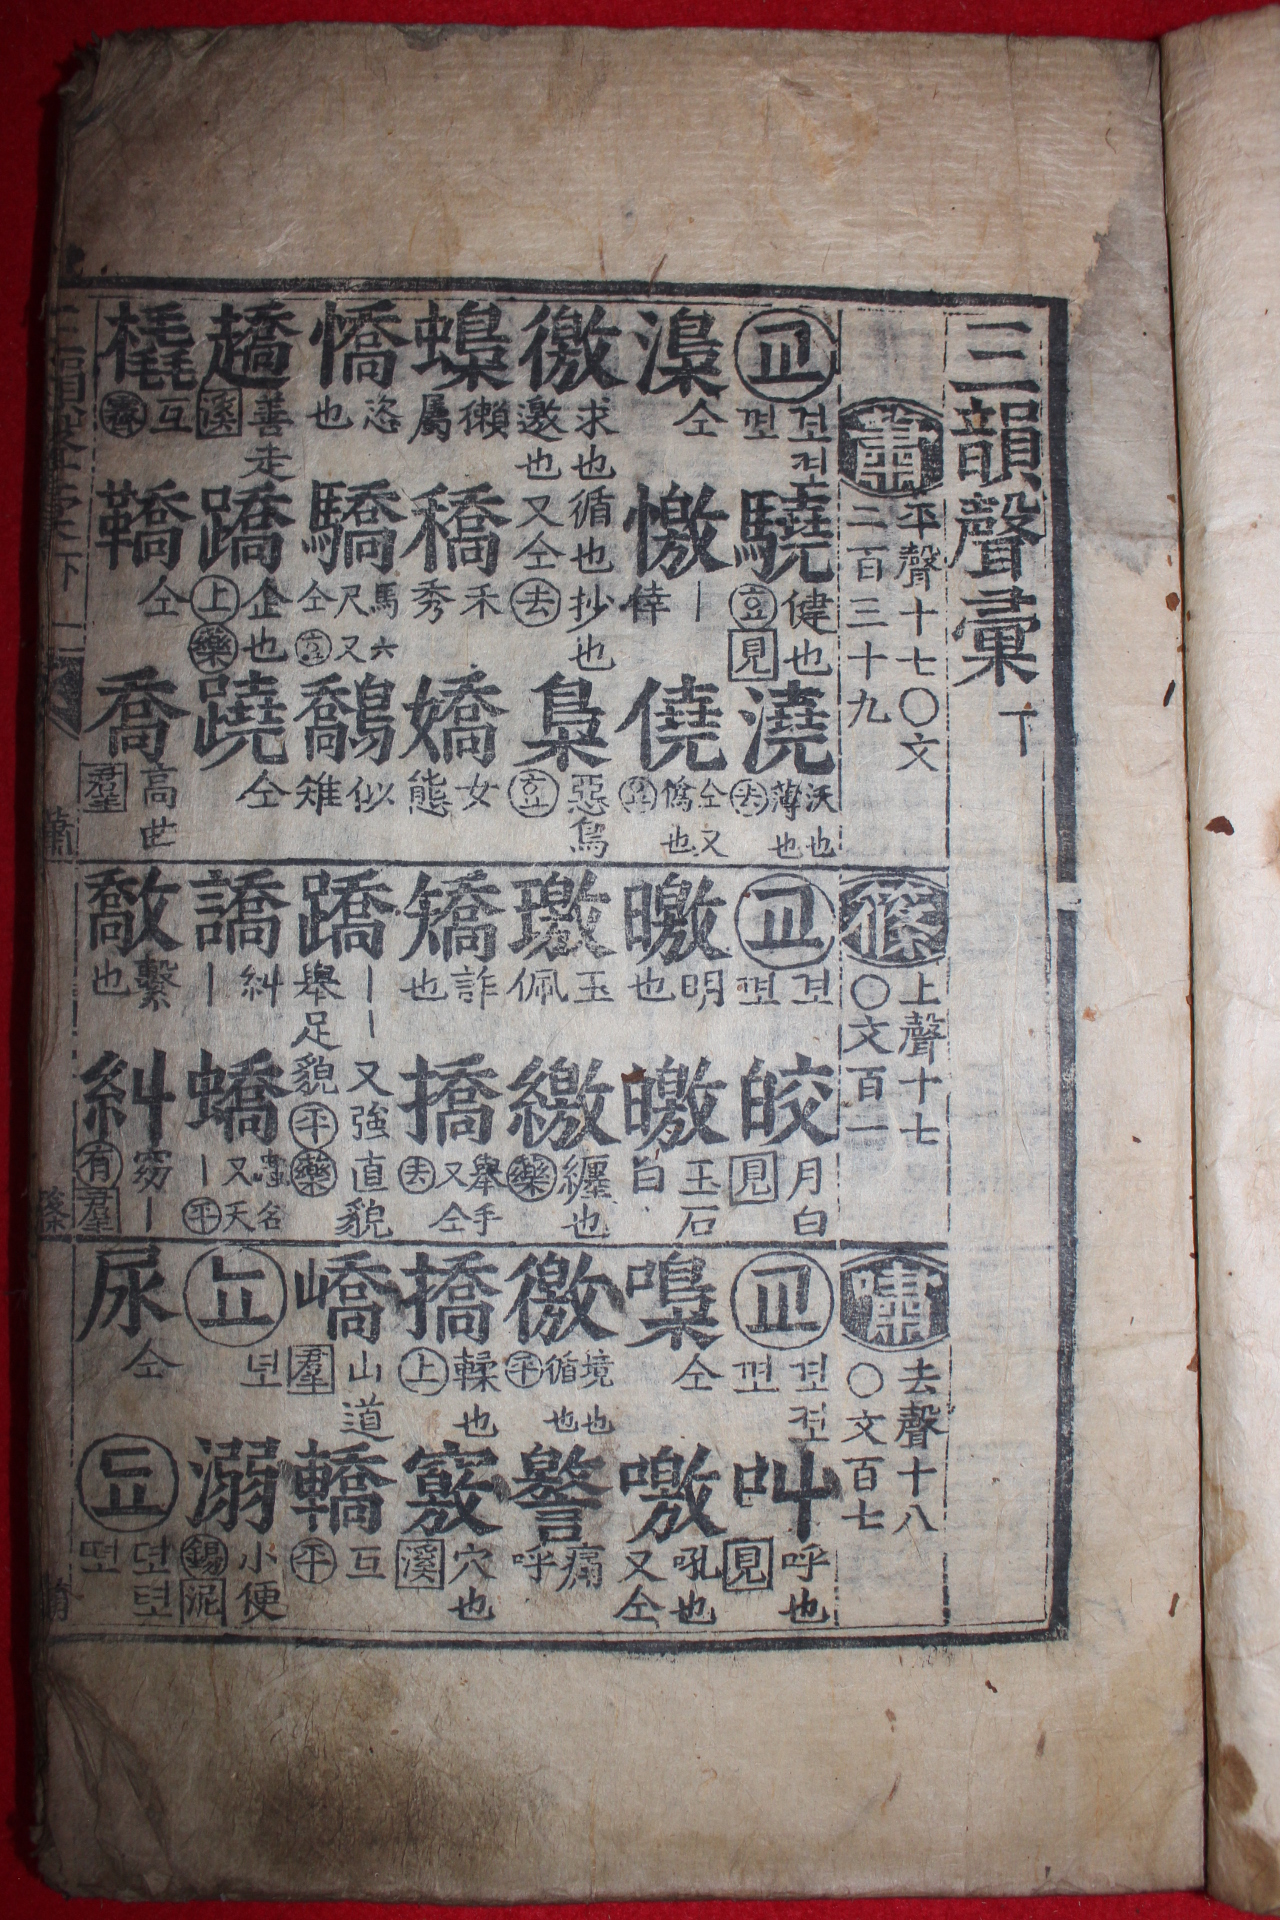 三韻聲彙 下
蕭 平聲十七〇文二百三十九
교 겨져 껴 驍 健也 見 澆 沃也薄也 去
澆 仝 憿 ｜倖 僥 仝又僞也
徼 求也循也抄也邀也又仝 去 梟 惡鳥
蟂 獺屬 穚 禾秀 嬌 女態
憍 恣也 驕 馬六尺又仝 鷮 似雉
趫 善走 溪 蹻 企也 上 藥 蹺 仝
橇 互 鞽 仝 喬 高世 羣
篠 上聲十七〇文百一
교 皎 月白 見
曒 明也 皦 玉石白
璬 玉佩 繳 纏也 藥
矯 詐也 撟 擧手又仝 去
蹻 ｜｜又強直貌擧足貌 平 藥
譑 糾｜ 蟜 蟲名又天｜ 平
敽 繫也 糾 窈｜ 有 羣
嘯 去聲十八〇文百七
교 叫 呼也 見
噭 吼也又仝
徼 境也循也 平 警 痛呼
撟 輮也 上 竅 穴也 溪
嶠 山道 羣 轎 互 平
뇨 溺 小便 錫 泥
尿 仝 됴
三韻聲彙下 蕭 篠 嘯